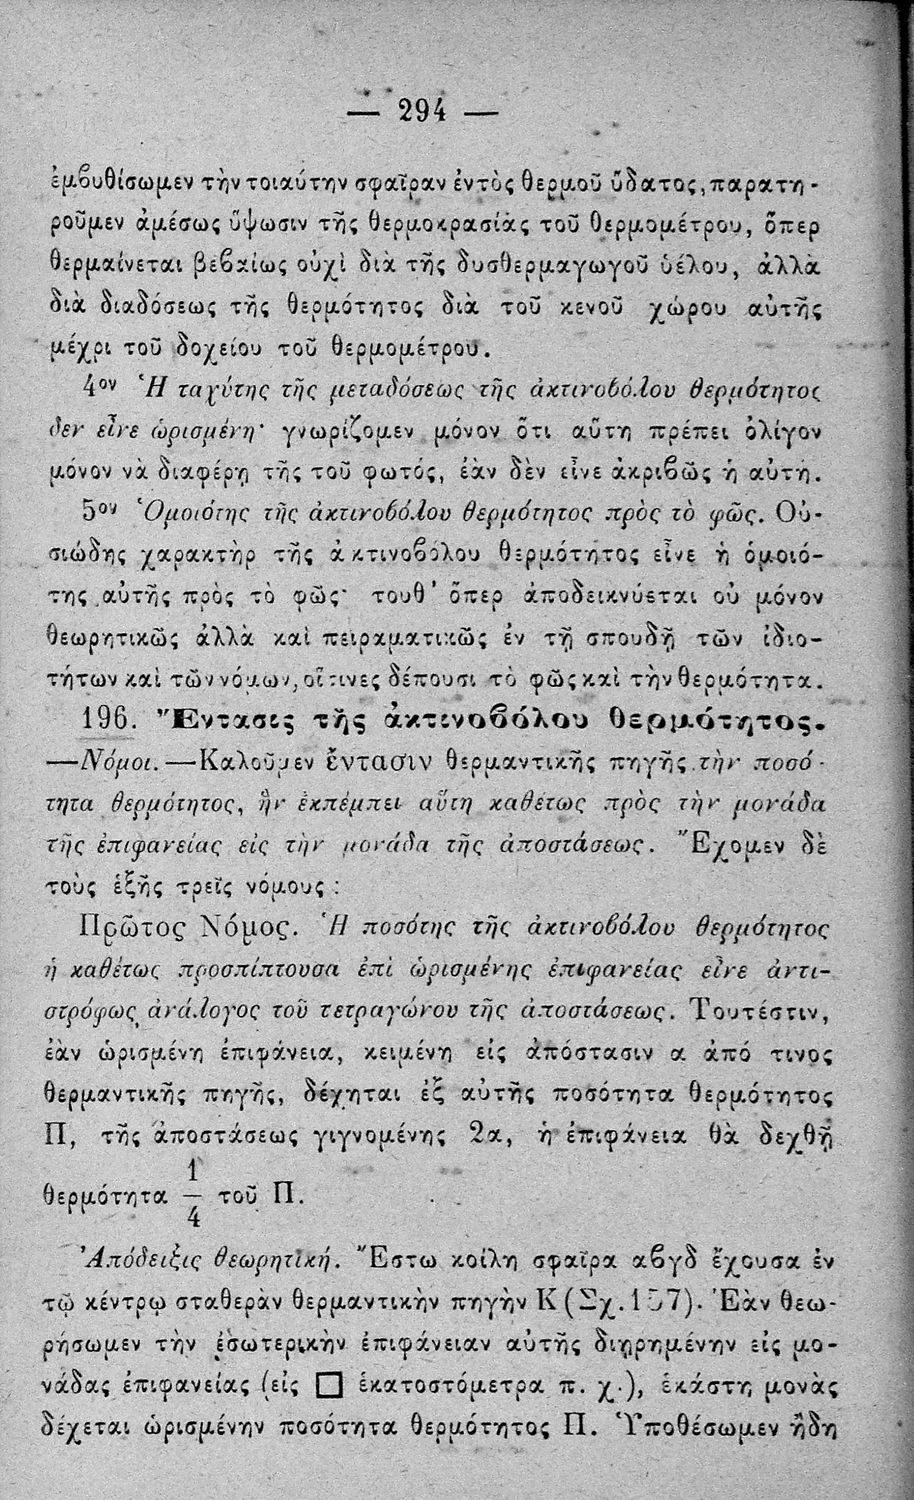 — 294 —
ἐμβυθίσωμεν τὴν τοιαύτην σφαῖραν ἐντὸς θερμοῦ ὕδατος, παρατη-
ροῦμεν ἀμέσως ὕψωσιν τῆς θερμοκρασίας τοῦ θερμομέτρου, ὅπερ
θερμαίνεται βεβαίως οὐχὶ διὰ τῆς δυσθερμαγωγοῦ ὑέλου, ἀλλὰ
διὰ διαδόσεως τῆς θερμότητος διὰ τοῦ κενοῦ χώρου αὐτῆς
μέχρι τοῦ δοχείου τοῦ θερμομέτρου.
4ον Ἡ ταχύτης τῆς μεταδόσεως τῆς ἀκτινοβόλου θερμότητος
δεν εἶνε ὡρισμένη· γνωρίζομεν μόνον ὅτι αὕτη πρέπει ὀλίγον
μόνον νὰ διαφέρῃ τῆς τοῦ φωτός, ἐὰν δὲν εἶνε ἀκριβῶς ἡ αὐτή.
5ον Ὁμοιότης τῆς ἀκτινοβόλου θερμότητος πρὸς τὸ φῶς. Οὐ-
σιώδης χαρακτὴρ τῆς ἀκτινοβόλου θερμότητος εἶνε ἡ ὁμοιό-
της αὐτῆς πρὸς τὸ φῶς· τουθ' ὅπερ ἀποδεικνύεται οὐ μόνον
θεωρητικῶς ἀλλὰ καὶ πειραματικῶς ἐν τῇ σπουδῇ τῶν ἰδιο-
τήτων καὶ τῶν νόμων, οἵτινες δέπουσι τὸ φῶς καὶ τὴν θερμότητα.
196. Ἔντασις τῆς ἀκτινοβόλου θερμότητος.
—Νόμοι.—Καλοῦμεν ἔντασιν θερμαντικῆς πηγῆς τὴν ποσό-
τητα θερμότητος, ἣν ἐκπέμπει αὕτη καθέτως πρὸς τὴν μονάδα
τῆς ἐπιφανείας εἰς τὴν μονάδα τῆς ἀποστάσεως. Ἔχομεν δὲ
τοὺς ἑξῆς τρεῖς νόμους:
Πρῶτος Νόμος. Ἡ ποσότης τῆς ἀκτινοβόλου θερμότητος
ἡ καθέτως προσπίπτουσα ἐπὶ ὡρισμένης ἐπιφανείας εἶνε ἀντι-
στρόφως ἀνάλογος τοῦ τετραγώνου τῆς ἀποστάσεως. Τουτέστιν,
ἐὰν ὡρισμένη ἐπιφάνεια, κειμένη εἰς ἀπόστασιν α ἀπό τινος
θερμαντικῆς πηγῆς, δέχηται ἐξ αὐτῆς ποσότητα θερμότητος
Π, τῆς ἀποστάσεως γιγνομένης 2α, ἡ ἐπιφάνεια θὰ δεχθῇ
θερμότητα 1/4 τοῦ Π.
Ἀπόδειξις θεωρητική. Ἔστω κοίλη σφαῖρα αβγδ ἔχουσα ἐν
τῷ κέντρῳ σταθερὰν θερμαντικὴν πηγὴν Κ (Σχ. 157). Ἐὰν θεω-
ρήσωμεν τὴν ἐσωτερικὴν ἐπιφάνειαν αὐτῆς διῃρημένην εἰς μο-
νάδας ἐπιφανείας (εἰς □ ἑκατοστόμετρα π. χ.), ἑκάστη μονὰς
δέχεται ὡρισμένην ποσότητα θερμότητος Π. Ὑποθέσωμεν ἤδη